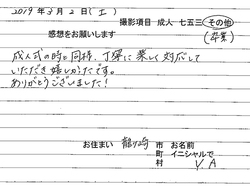 2019年3月2日(土)
撮影項目 成人 七五三 その他
(卒業)
感想をお願いします
成人式の時と同様、丁寧に楽しく対応して
いただき嬉しかったです。
ありがとうございました!
お住まい 龍ヶ崎 市 お名前
町 イニシャルで
村 Y.A